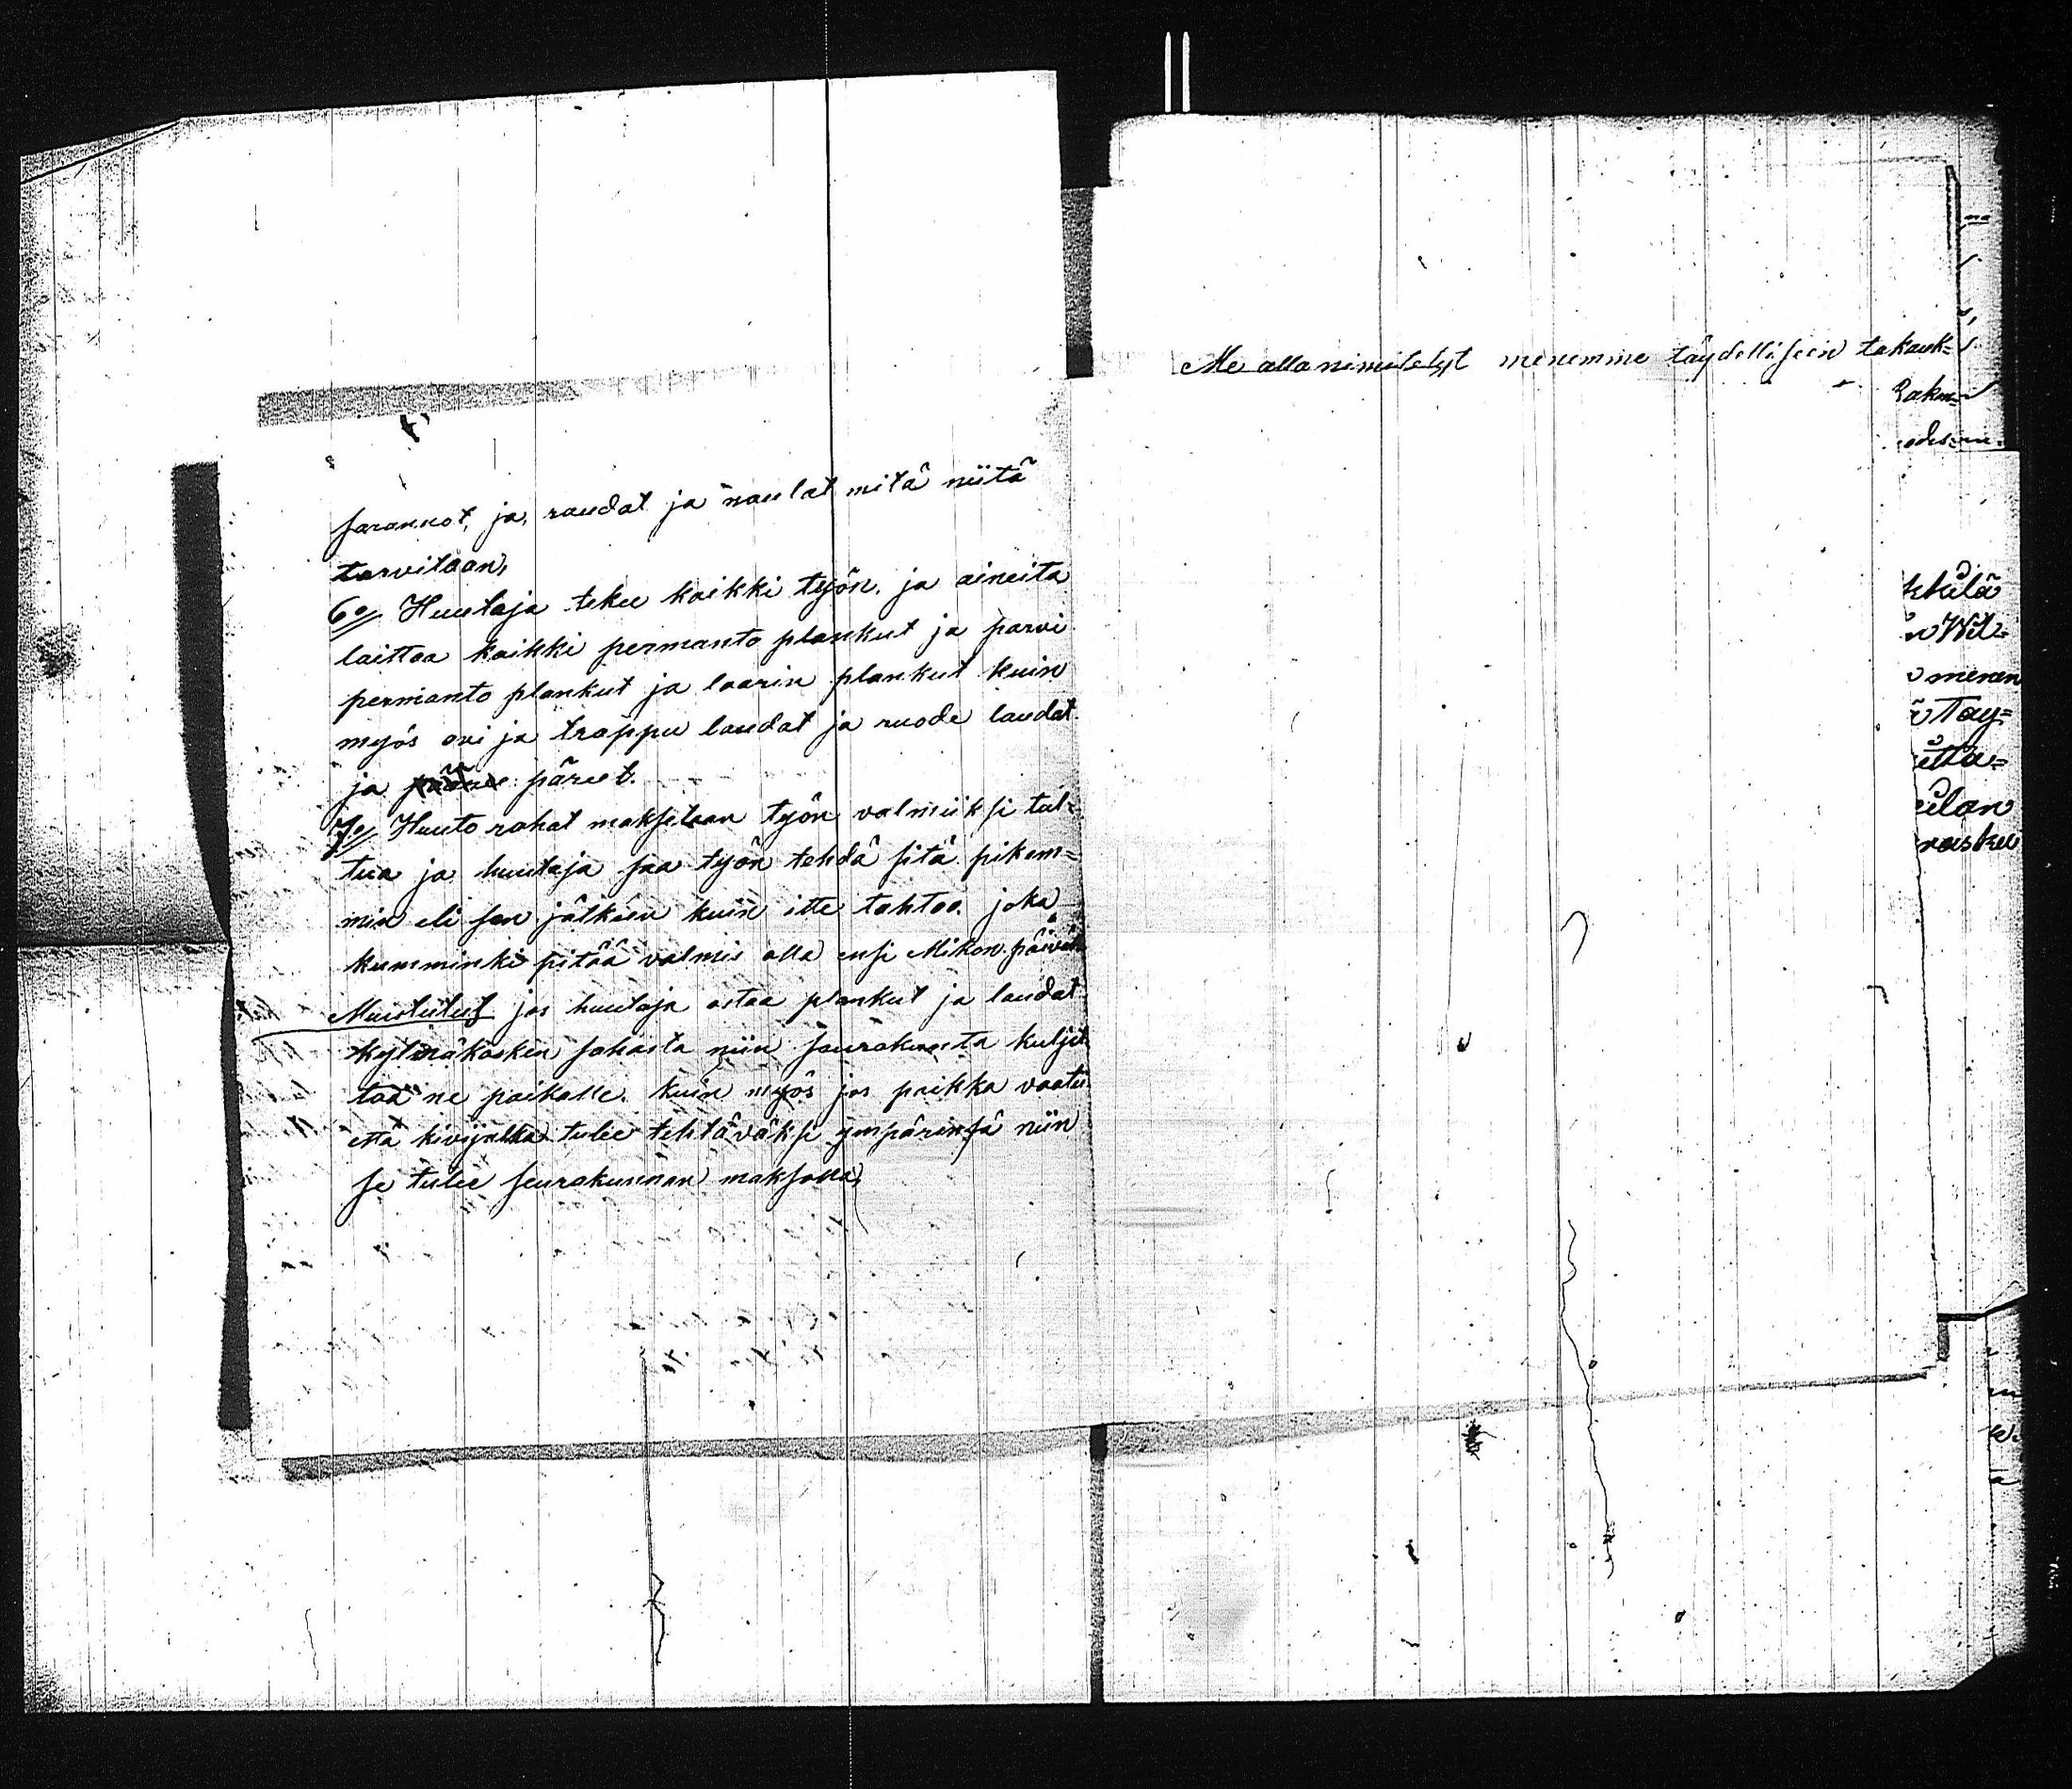 sarannot, ja, raudat ja naulat mitä niitä
tarvitaan,
6o/ Huutaja tekee kaikki työn, ja aineita
laittaa kaikki permanto plankut ja parvi
permanto plankut ja laarin plankut kuin
myös ovi ja trappu laudat ja ruode laudat
ja päreet.
7o/ Huuto rahat maksetaan työn valmiiksi tul-
tua ja huutaja saa työn tehdä sitä pikem=
min eli sen jälkeen kuin itte tahtoo. joka
kumminki pitää valmis olla ensi Mikon päivä
Muistutus jos huutaja ostaa plankut ja laudat
kylmäkosken sahasta niin seurakunta kuljet
taa ne paikalle. kuin myös jos paikka vaatii
että kivijalka tulee tehtäväksi ympärinsä niin
se tulee seurakunnan maksolle,
Me alla nimitetyt menemme täydelliseen takauk=
Rakm=
kkilä
Wil=
menen
Tay=
etta=
eilan
raskee